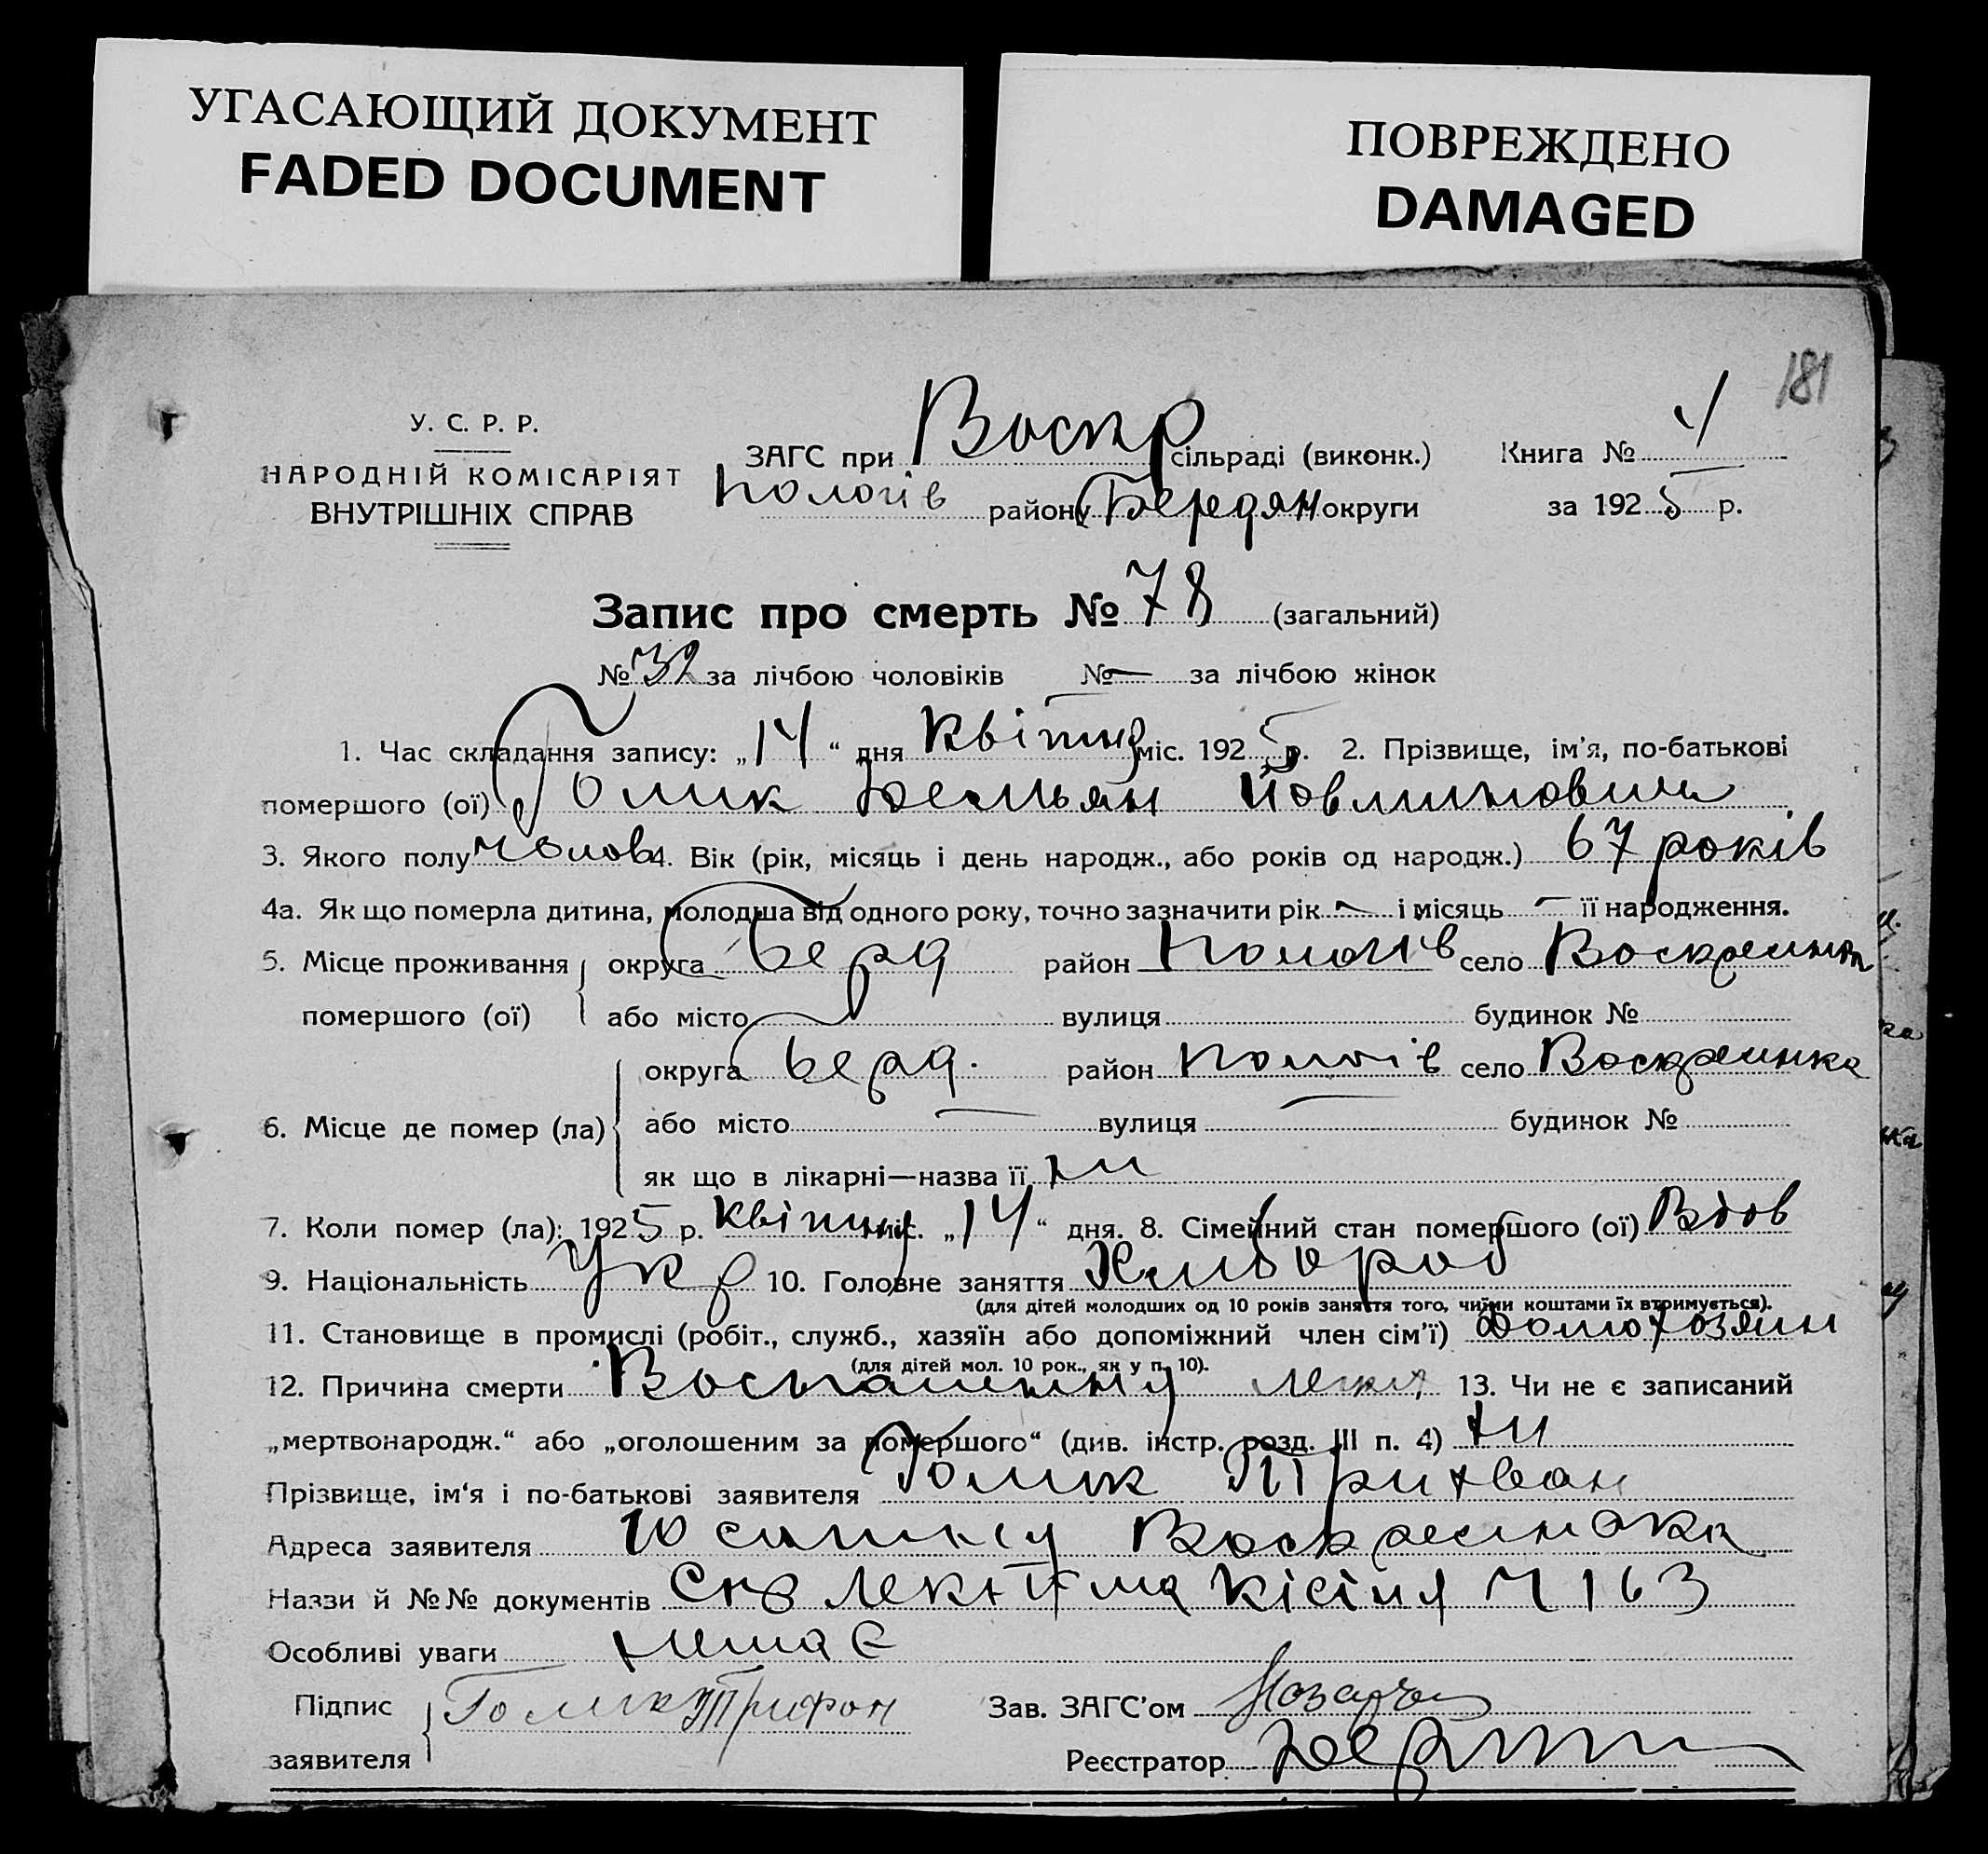 УГАСАЮЩИЙ ДОКУМЕНТ
FADED DOCUMENT
ПОВРЕЖДЕНО
DAMAGED
181
У. С. Р. Р.
НАРОДНІЙ КОМІСАРІЯТ
ВНУТРІШНІХ СПРАВ
ЗАГС при Воскр сільраді (виконк.)
Пологів району Бердян округи
Книга № 4
за 1925 р.
Запис про смерть № 78 (загальний)
№ 32 за лічбою чоловіків № — за лічбою жінок
1. Час складання запису: „14“ дня квітня міс. 1925 р. 2. Прізвище, ім’я, по-батькові
помершого (ої) Голик
3. Якого полу чолов 4. Вік (рік, місяць і день народж., або років од народж.) 67 років
4а. Як що померла дитина, молодша від одного року, точно зазначити рік — і місяць — її народження.
5. Місце проживання округа Берд район Пологів село Воскресенка
помершого (ої) або місто вулиця будинок №
округа Берд. район Пологів село Воскресенка
6. Місце де помер (ла) або місто — вулиця — будинок №
як що в лікарні—назва її ни
7. Коли помер (ла): 1925 р. квітня міс. „14“ дня. 8. Сімейний стан помершого (ої) Вдов
9. Національність Укр 10. Головне заняття Хлібороб
(для дітей молодших од 10 років заняття того, чиїми коштами їх втримується).
11. Становище в промислі (робіт., служб., хазяїн або допоміжний член сім’ї) домохозяин
(для дітей мол. 10 рок., як у п. 10).
12. Причина смерти легких 13. Чи не є записаний
„мертвонародж.“ або „оголошеним за помершого“ (див. інстр. розд. III п. 4) ни
Прізвище, ім‘я і по-батькові заявителя Голик
Адреса заявителя Воскресенка
Назви й №№ документів № 163
Особливі уваги немає
Підпис Голик Трифон Зав. ЗАГС’ом
заявителя Реєстратор